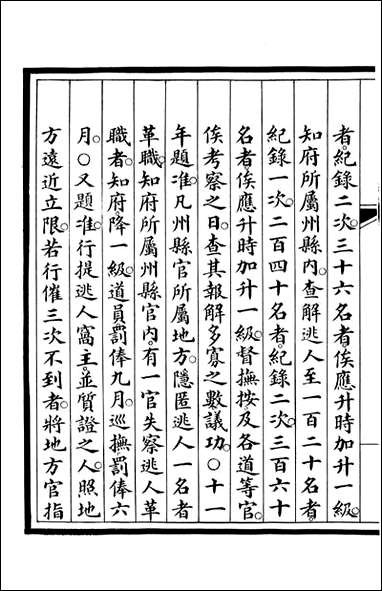 者。紀錄二次。三十六名者。俟應升時加升一級。
知府所屬州縣內。查解逃人至一百二十名者。
紀錄一次。二百四十名者。紀錄二次。三百六十
名者。俟應升時加升一級。督撫按及各道等官。
俟考察之日。查其報解多寡之數議功。○十一
年題准。凡州縣官所屬地方。隱匿逃人一名者
革職。知府所屬州縣官內。有一官失察逃人革
職者。知府降一級。道員罰俸九月。巡撫罰俸六
月。○又題准。行提逃人窩主。並質證之人。照地
方遠近立限。若行催三次不到者。將地方官指